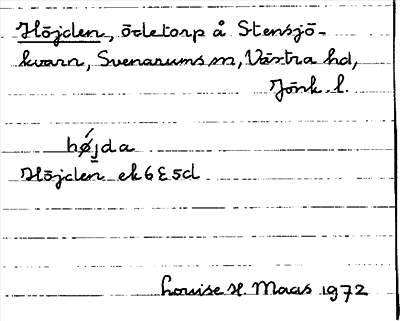 Höjden, ödetorp å Stensjö-
kvarn, Svenarums sn, Västra hd,
Jönk. l.
hǿjda
Höjden ek 6 E 5d
Louise H. Maas 1972